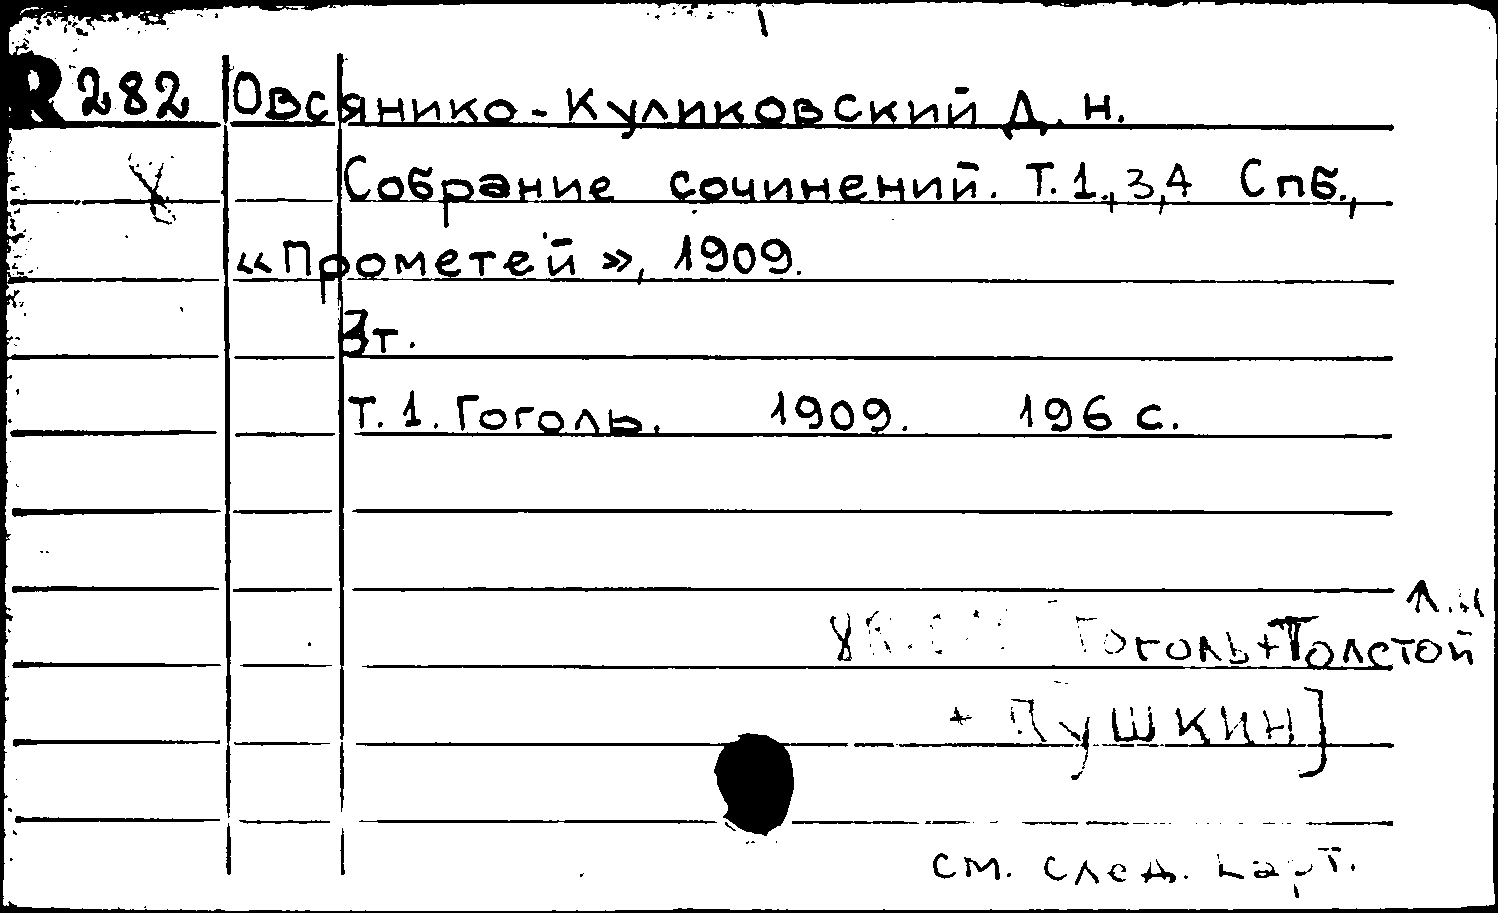 R 282 Овсянико-Куликовский Д. Н.
Собрание сочинений. Т. 1, 3, 4 Спб.,
«Прометей», 1909.
3 т.
Т. 1. Гоголь. 1909. 196 с.
Л.Н
Гоголь + Толстой
+ Пушкин]
см. след. карт.